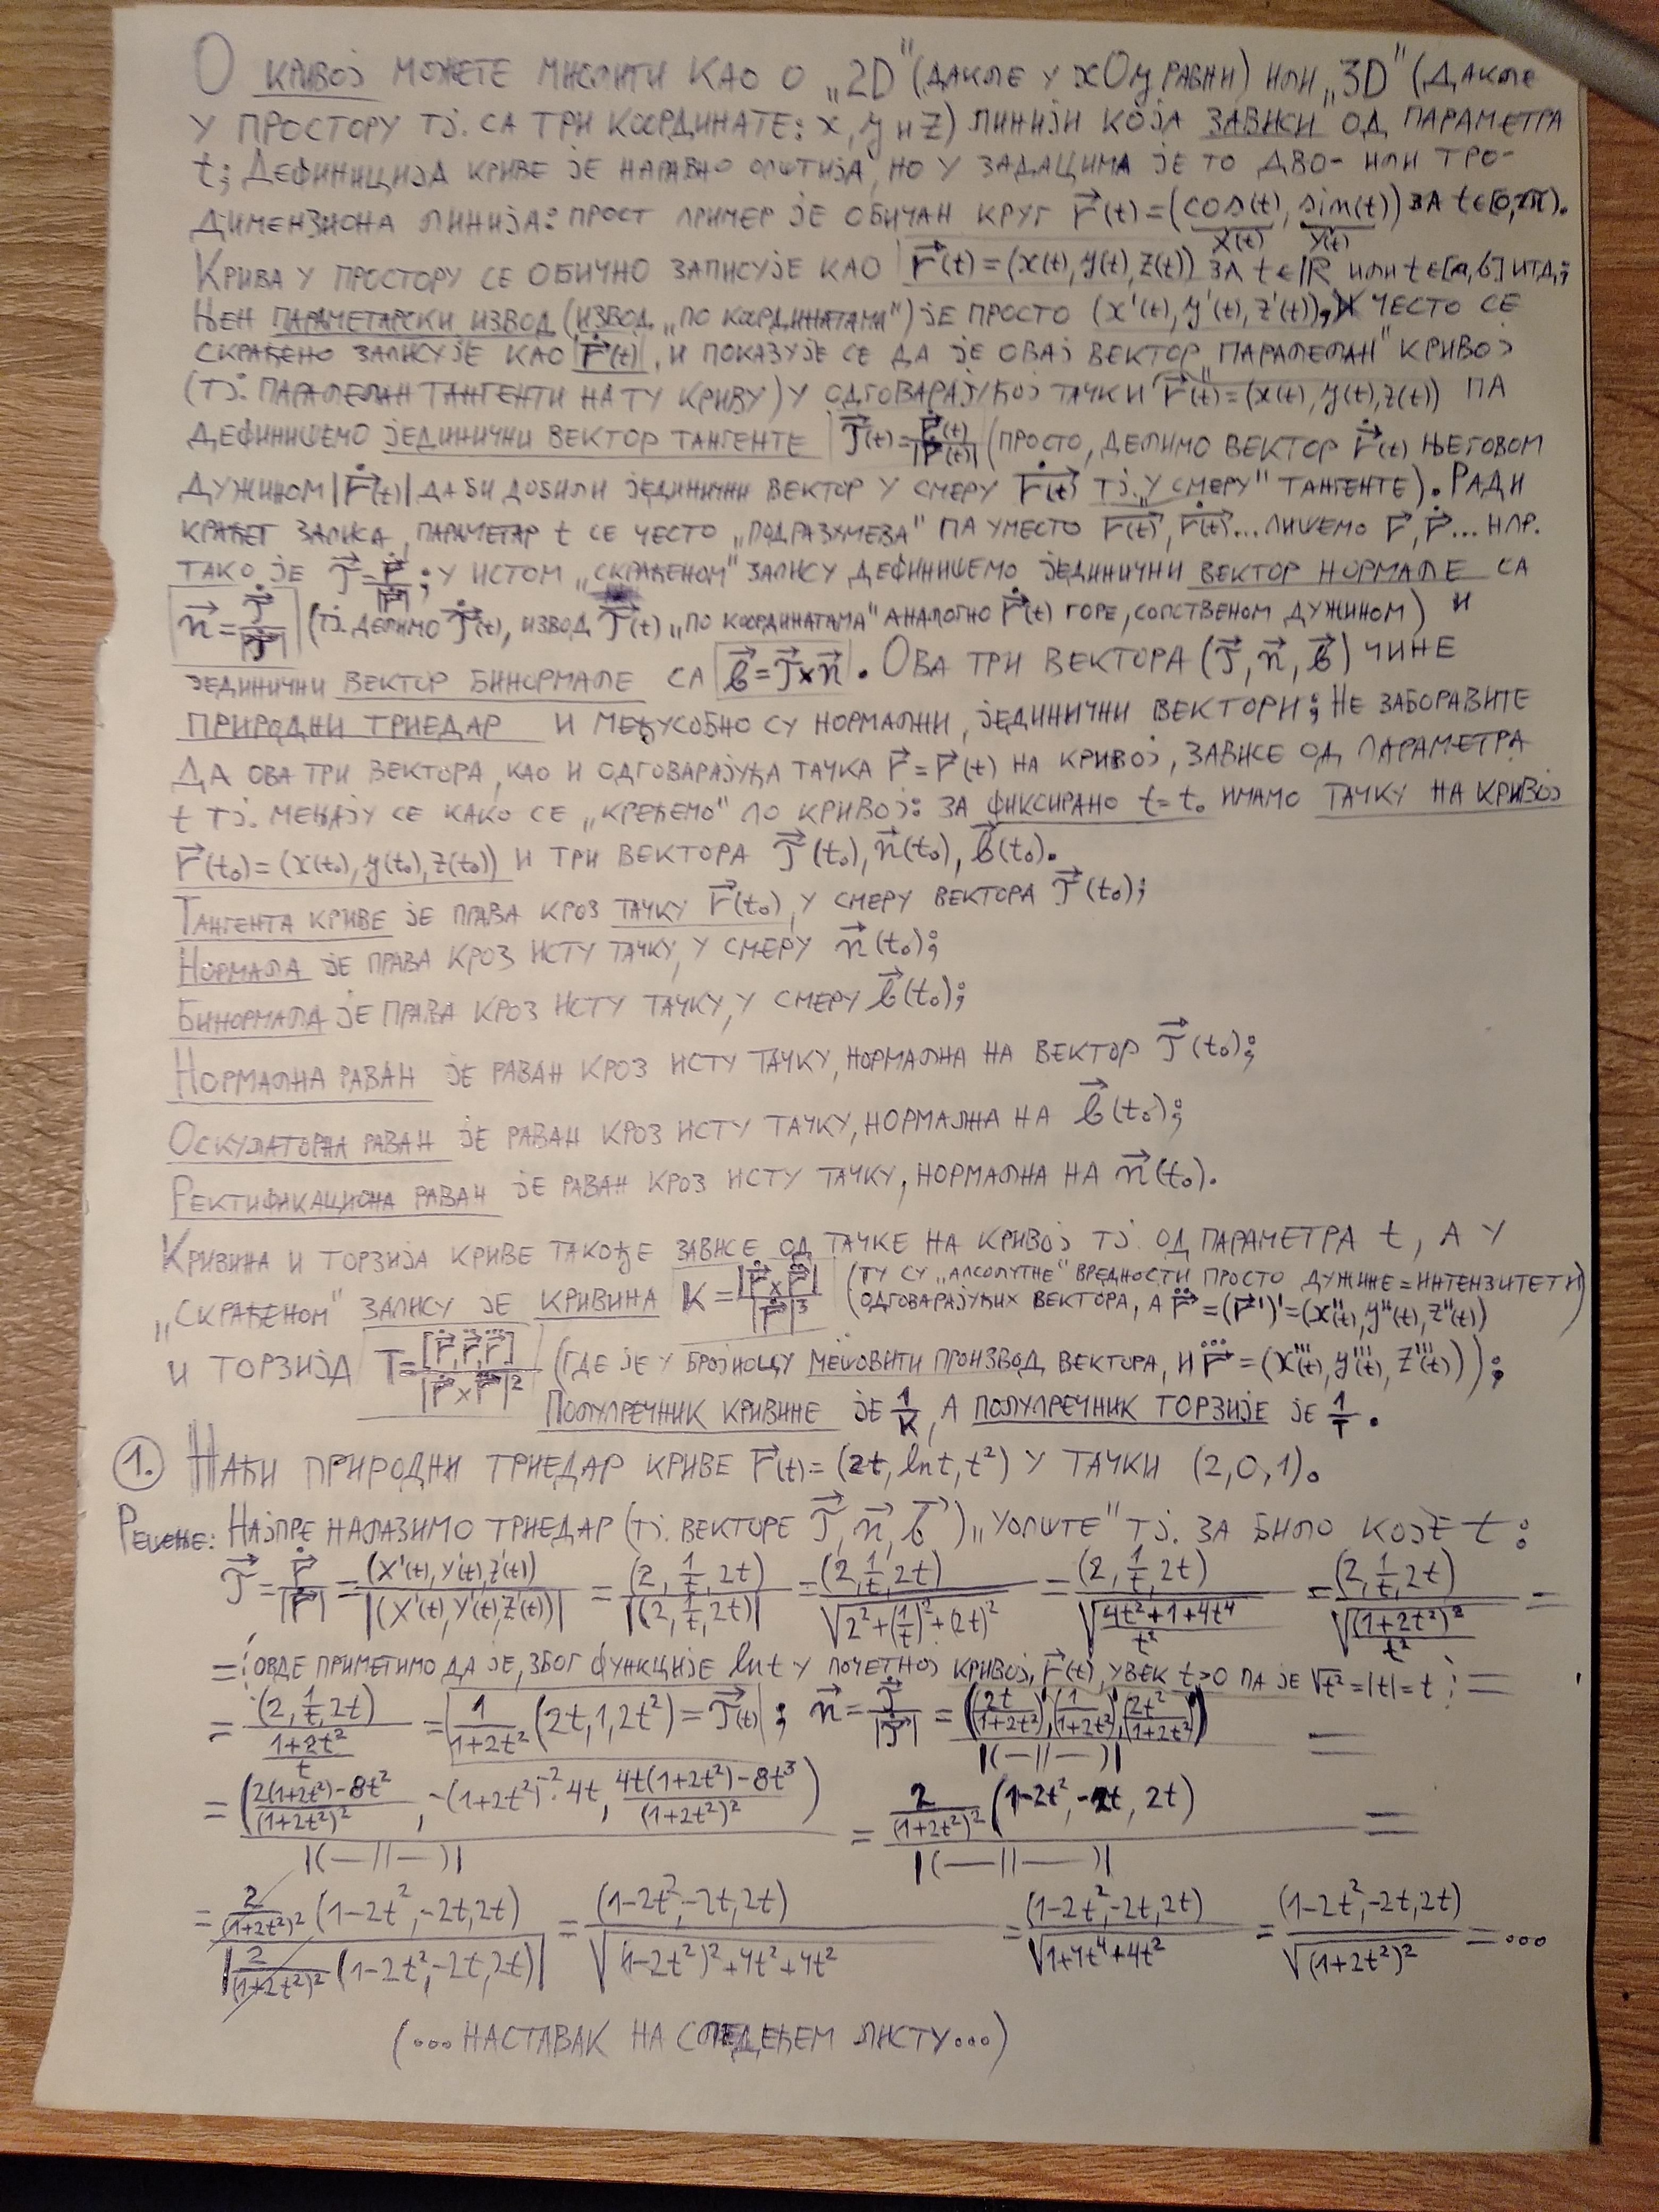 О КРИВОЈ МОЖЕТЕ МИСЛИТИ КАО О „2D" (ДАКЛЕ У xOy РАВНИ) ИЛИ „3D" (ДАКЛЕ
У ПРОСТОРУ ТЈ. СА ТРИ КООРДИНАТЕ: x, y и z) ЛИНИЈИ КОЈА ЗАВИСИ ОД ПАРАМЕТРА
t; ДЕФИНИЦИЈА КРИВЕ ЈЕ НАРАВНО ОПШТИЈА, НО У ЗАДАЦИМА ЈЕ ТО ДВО- ИЛИ ТРО-
ДИМЕНЗИОНА ЛИНИЈА: ПРОСТ ПРИМЕР ЈЕ ОБИЧАН КРУГ r⃗(t)=(cos(t), sin(t)) ЗА t∈[0,2π).
x(t) y(t)
КРИВА У ПРОСТОРУ СЕ ОБИЧНО ЗАПИСУЈЕ КАО r⃗(t)=(x(t), y(t), z(t)) ЗА t∈ℝ ИЛИ t∈[a,b] ИТД;
ЊЕН ПАРАМЕТАРСКИ ИЗВОД (ИЗВОД „ПО КООРДИНАТАМА") ЈЕ ПРОСТО (x'(t), y'(t), z'(t)), ЧЕСТО СЕ
СКРАЋЕНО ЗАПИСУЈЕ КАО r⃗̇(t), И ПОКАЗУЈЕ СЕ ДА ЈЕ ОВАЈ ВЕКТОР „ПАРАЛЕЛАН" КРИВОЈ
(ТЈ. ПАРАЛЕЛАН ТАНГЕНТИ НА ТУ КРИВУ) У ОДГОВАРАЈУЋОЈ ТАЧКИ r⃗(t)=(x(t), y(t), z(t)) ПА
ДЕФИНИШЕМО ЈЕДИНИЧНИ ВЕКТОР ТАНГЕНТЕ T⃗(t)=r⃗̇(t)/|r⃗̇(t)| (ПРОСТО, ДЕЛИМО ВЕКТОР r⃗̇(t) ЊЕГОВОМ
ДУЖИНОМ |r⃗̇(t)| ДА БИ ДОБИЛИ ЈЕДИНИЧНИ ВЕКТОР У СМЕРУ r⃗̇(t) ТЈ. „У СМЕРУ" ТАНГЕНТЕ). РАДИ
КРАЋЕГ ЗАПИСА, ПАРАМЕТАР t СЕ ЧЕСТО „ПОДРАЗУМЕВА" ПА УМЕСТО r⃗(t), r⃗̇(t)... ПИШЕМО r⃗, r⃗̇... НПР.
ТАКО ЈЕ T⃗=r⃗̇/|r⃗̇|; У ИСТОМ „СКРАЋЕНОМ" ЗАПИСУ ДЕФИНИШЕМО ЈЕДИНИЧНИ ВЕКТОР НОРМАЛЕ СА
n⃗=T⃗̇/|T⃗̇| (ТЈ. ДЕЛИМО T⃗̇(t), ИЗВОД T⃗(t) „ПО КООРДИНАТАМА" АНАЛОГНО r⃗̇(t) ГОРЕ, СОПСТВЕНОМ ДУЖИНОМ) И
ЈЕДИНИЧНИ ВЕКТОР БИНОРМАЛЕ СА b⃗=T⃗×n⃗. ОВА ТРИ ВЕКТОРА (T⃗, n⃗, b⃗) ЧИНЕ
ПРИРОДНИ ТРИЕДАР И МЕЂУСОБНО СУ НОРМАЛНИ, ЈЕДИНИЧНИ ВЕКТОРИ; НЕ ЗАБОРАВИТЕ
ДА ОВА ТРИ ВЕКТОРА, КАО И ОДГОВАРАЈУЋА ТАЧКА r⃗=r⃗(t) НА КРИВОЈ, ЗАВИСЕ ОД ПАРАМЕТРА
t ТЈ. МЕЊАЈУ СЕ КАКО СЕ „КРЕЋЕМО" ПО КРИВОЈ: ЗА ФИКСИРАНО t=t₀ ИМАМО ТАЧКУ НА КРИВОЈ
r⃗(t₀)=(x(t₀), y(t₀), z(t₀)) И ТРИ ВЕКТОРА T⃗(t₀), n⃗(t₀), b⃗(t₀).
ТАНГЕНТА КРИВЕ ЈЕ ПРАВА КРОЗ ТАЧКУ r⃗(t₀), У СМЕРУ ВЕКТОРА T⃗(t₀);
НОРМАЛА ЈЕ ПРАВА КРОЗ ИСТУ ТАЧКУ, У СМЕРУ n⃗(t₀);
БИНОРМАЛА ЈЕ ПРАВА КРОЗ ИСТУ ТАЧКУ, У СМЕРУ b⃗(t₀);
НОРМАЛНА РАВАН ЈЕ РАВАН КРОЗ ИСТУ ТАЧКУ, НОРМАЛНА НА ВЕКТОР T⃗(t₀);
ОСКУЛАТОРНА РАВАН ЈЕ РАВАН КРОЗ ИСТУ ТАЧКУ, НОРМАЛНА НА b⃗(t₀);
РЕКТИФИКАЦИОНА РАВАН ЈЕ РАВАН КРОЗ ИСТУ ТАЧКУ, НОРМАЛНА НА n⃗(t₀).
КРИВИНА И ТОРЗИЈА КРИВЕ ТАКОЂЕ ЗАВИСЕ ОД ТАЧКЕ НА КРИВОЈ ТЈ. ОД ПАРАМЕТРА t, А У
„СКРАЋЕНОМ" ЗАПИСУ ЈЕ КРИВИНА K=|r⃗̇×r⃗̈|/|r⃗̇|³ (ТУ СУ „АПСОЛУТНЕ" ВРЕДНОСТИ ПРОСТО ДУЖИНЕ=ИНТЕНЗИТЕТИ
ОДГОВАРАЈУЋИХ ВЕКТОРА, А r⃗̈=(r⃗')'=(x''(t), y''(t), z''(t))
И ТОРЗИЈА T=[r⃗̇, r⃗̈, r⃗⃛]/|r⃗̇×r⃗̈|² (ГДЕ ЈЕ У БРОЈИОЦУ МЕШОВИТИ ПРОИЗВОД ВЕКТОРА, И r⃗⃛=(x'''(t), y'''(t), z'''(t)));
ПОЛУПРЕЧНИК КРИВИНЕ ЈЕ 1/K, А ПОЛУПРЕЧНИК ТОРЗИЈЕ ЈЕ 1/T.
1. НАЋИ ПРИРОДНИ ТРИЕДАР КРИВЕ r⃗(t)=(2t, ln t, t²) У ТАЧКИ (2,0,1).
РЕШЕЊЕ: НАЈПРЕ НАЛАЗИМО ТРИЕДАР (ТЈ. ВЕКТОРЕ T⃗, n⃗, b⃗) „УОПШТЕ" ТЈ. ЗА БИЛО КОЈЕ t:
T⃗=r⃗̇/|r⃗̇|=(x'(t), y'(t), z'(t))/|(x'(t), y'(t), z'(t))|=(2, 1/t, 2t)/|(2, 1/t, 2t)|=(2, 1/t, 2t)/√(2²+(1/t)²+(2t)²)=(2, 1/t, 2t)/√((4t²+1+4t⁴)/t²)=(2, 1/t, 2t)/√((1+2t²)²/t²)=
=¦ОВДЕ ПРИМЕТИМО ДА ЈЕ, ЗБОГ ФУНКЦИЈЕ ln t У ПОЧЕТНОЈ КРИВОЈ, r⃗(t), УВЕК t>0 ПА ЈЕ √t²=|t|=t¦=
=(2, 1/t, 2t)/((1+2t²)/t)=1/(1+2t²)(2t, 1, 2t²)=T⃗(t); n⃗=T⃗̇/|T⃗̇|=((2t/(1+2t²))', (1/(1+2t²))', (2t²/(1+2t²))')/|(—||—)|=
=((2(1+2t²)-8t²)/(1+2t²)², -(1+2t²)⁻²·4t, (4t(1+2t²)-8t³)/(1+2t²)²)/|(—||—)|=2/(1+2t²)²(1-2t², -2t, 2t)/|(—||—)|=
=2/(1+2t²)²(1-2t², -2t, 2t)/|2/(1+2t²)²(1-2t², -2t, 2t)|=(1-2t², -2t, 2t)/√((1-2t²)²+4t²+4t²)=(1-2t², -2t, 2t)/√(1+4t⁴+4t²)=(1-2t², -2t, 2t)/√((1+2t²)²)=...
(...НАСТАВАК НА СЛЕДЕЋЕМ ЛИСТУ...)